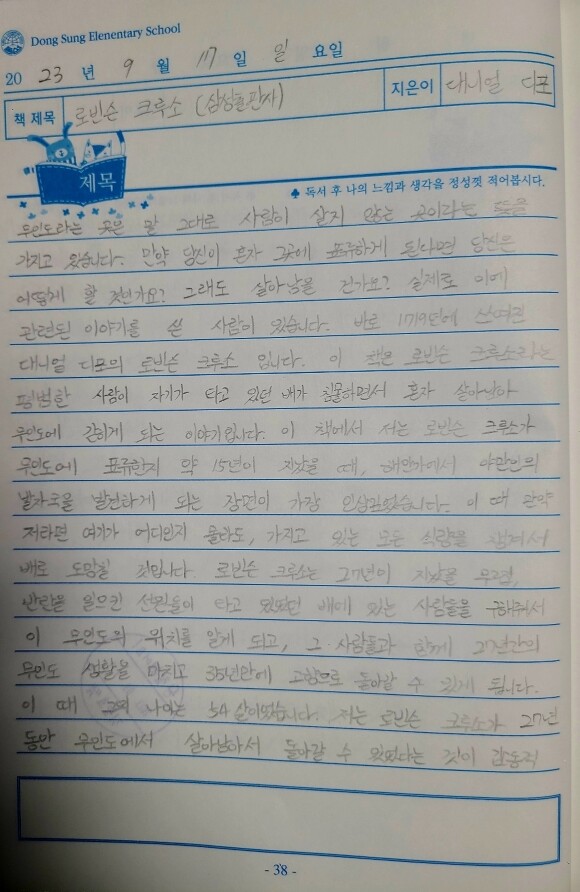 Dong Sung Elenentary School
2023년 9월 17일 일요일
책 제목 로빈슨 크루소 (삼성출판사) 지은이 대니얼 디포
제목
♣ 독서 후 나의 느낌과 생각을 정성껏 적어봅시다.
무인도라는 곳은 말 그대로 사람이 살지 않는 곳이라는 뜻을
가지고 있습니다. 만약 당신이 혼자 그곳에 표류하게 된다면 당신은
어떻게 할 것인가요? 그래도 살아남을 건가요? 실제로 이에
관련된 이야기를 쓴 사람이 있습니다. 바로 1719년에 쓰여진
대니얼 디포의 로빈슨 크루소 입니다. 이 책은 로빈슨 크루소라는
평범한 사람이 자기가 타고 있던 배가 침몰하면서 혼자 살아남아
무인도에 갇히게 되는 이야기입니다. 이 책에서 저는 로빈슨 크루소가
무인도에 표류한지 약 15년이 지났을 때, 해안가에서 야만인의
발자국을 발견하게 되는 장면이 가장 인상깊었습니다. 이 때 만약
저라면 여기가 어디인지 몰라도, 가지고 있는 모든 식량을 챙겨서
배로 도망칠 것입니다. 로빈슨 크루소는 27년이 지났을 무렵,
반란을 일으킨 선원들이 타고 있었던 배에 있는 사람들을 구해줘서
이 무인도의 위치를 알게 되고, 그 사람들과 함께 27년간의
무인도 생활을 마치고 35년만에 고향으로 돌아갈 수 있게 됩니다.
이 때 그의 나이는 54살이었습니다. 저는 로빈슨 크루소가 27년
동안 무인도에서 살아남아서 돌아갈 수 있었다는 것이 감동적
- 38 -